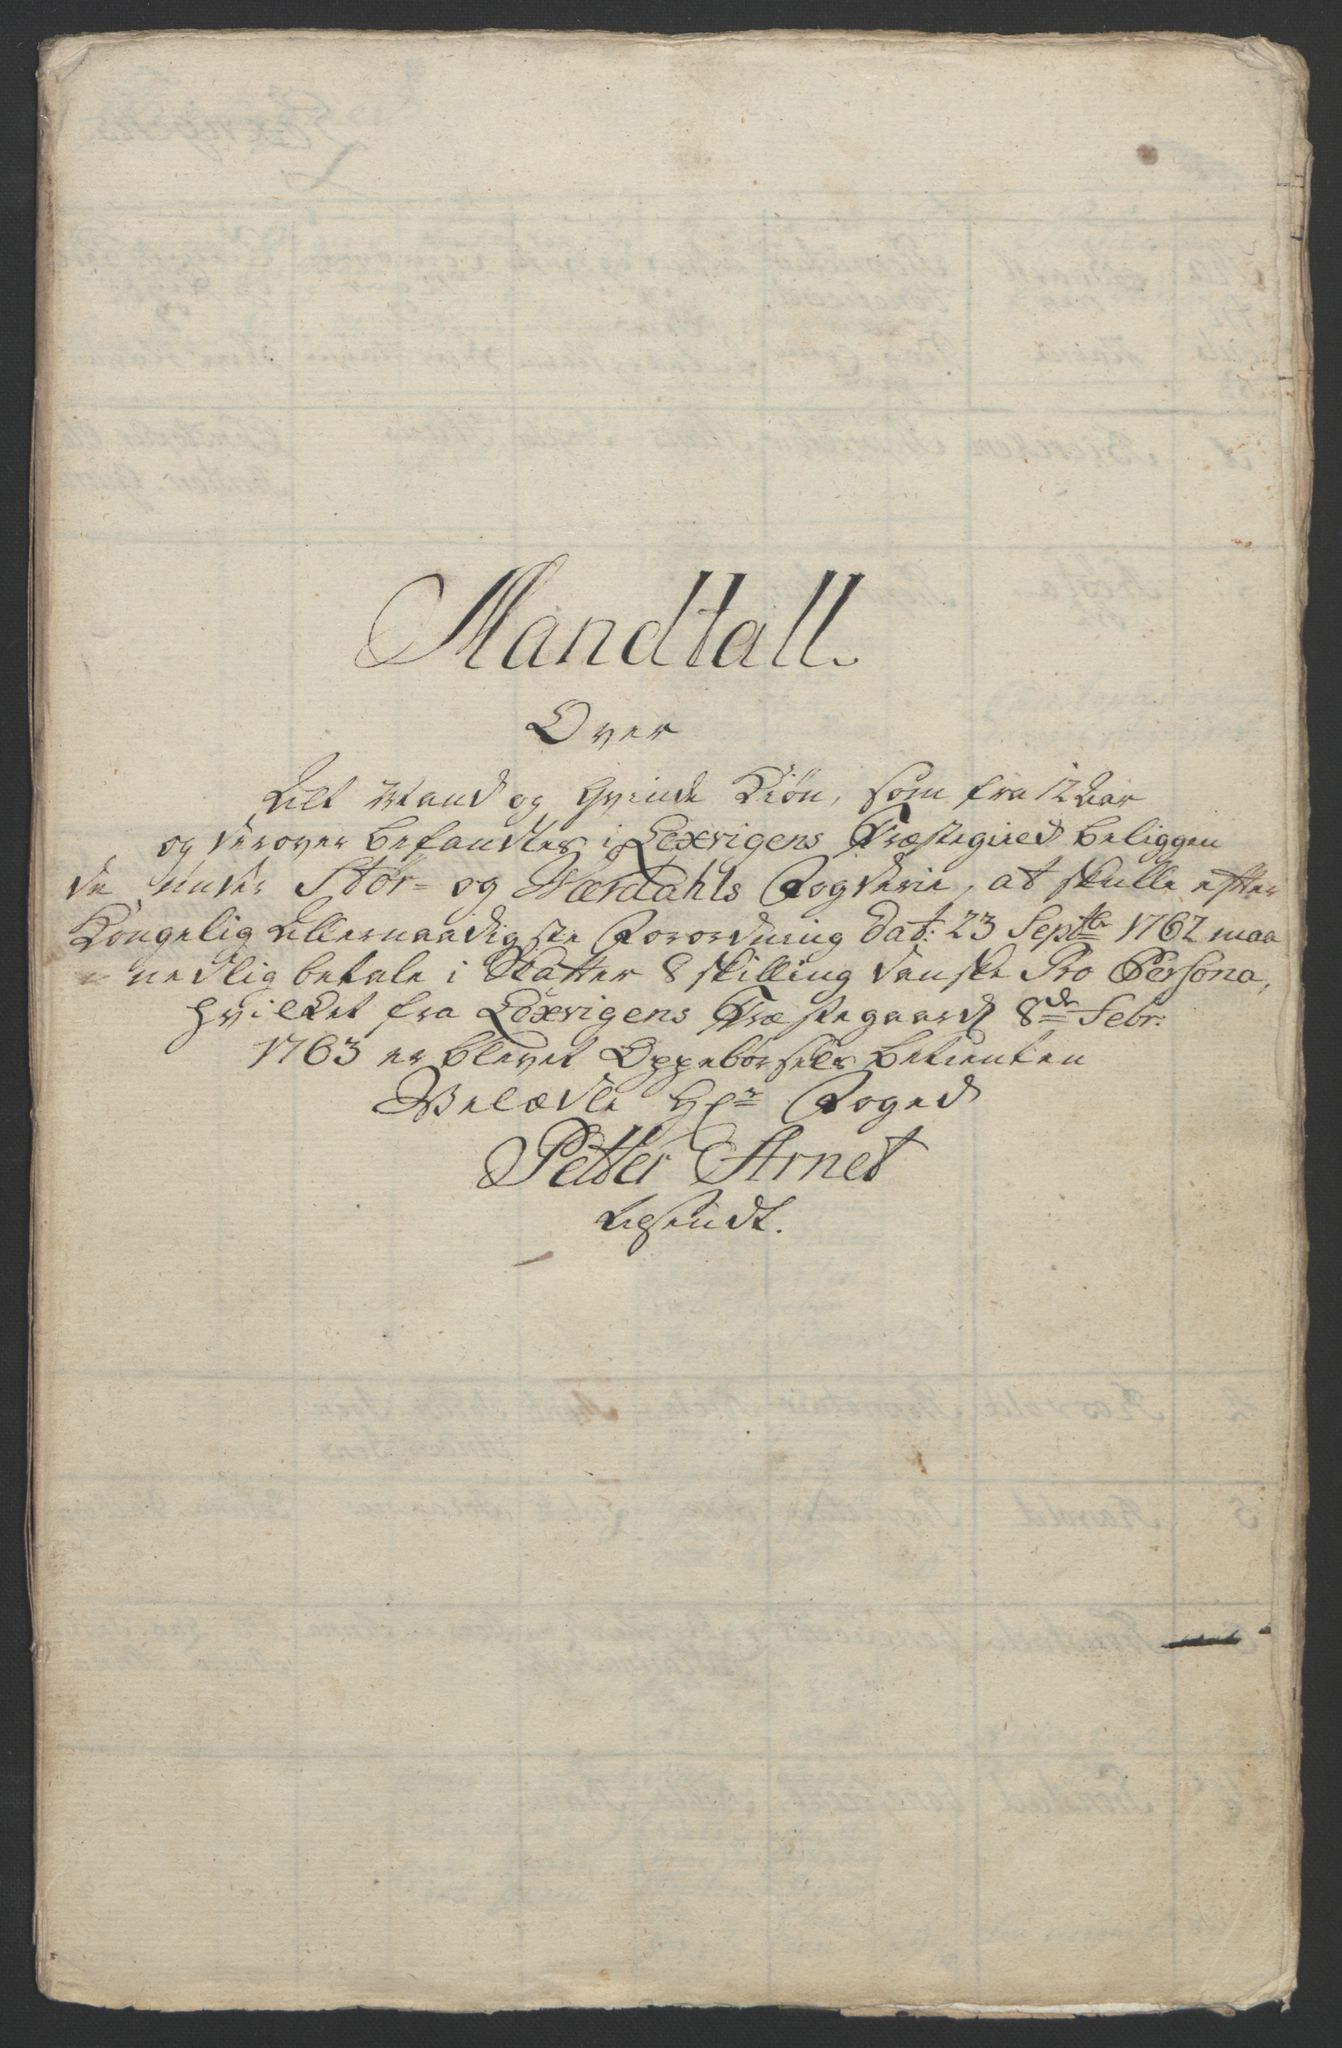 Mandtall.
Over
Alt Mand og Qvinde Kiøn, som fra 12 Aar
og derover befandtes i Lexvigens Præstegield beliggen
de under Stør- og Værdahls Fogderie, at skulle efter
Kongelig Allernaadigste Forordning Dat: 23 Septbr 1762 maa
nedlig betale i Skatter 8 skilling danske Pro Persona,
hvilket fra Lexvigens Præstegaard 8de Febr:
1763 er blevet Oppebørsels betienten
Velædle Hr Foged
Petter Arnet
tilsendt.